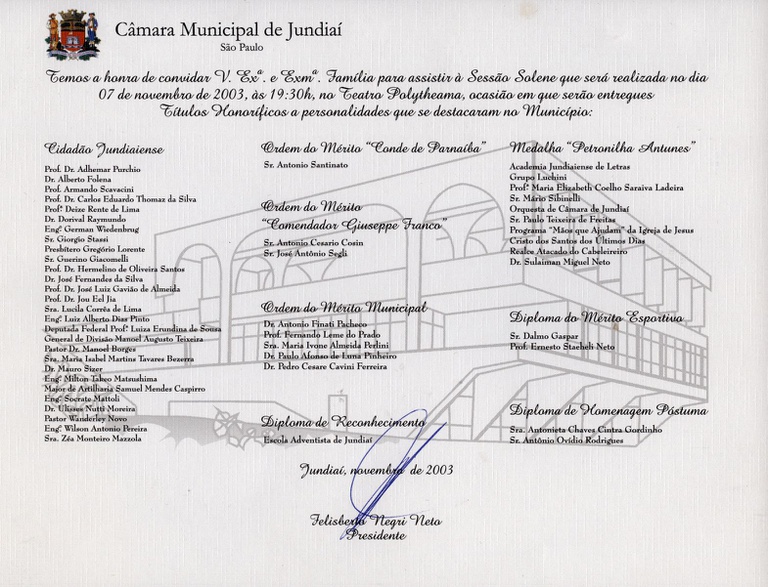 Câmara Municipal de Jundiaí
São Paulo
Temos a honra de convidar V. Exª. e Exmª. Família para assistir à Sessão Solene que será realizada no dia
07 de novembro de 2003, às 19:30h, no Teatro Polytheama, ocasião em que serão entregues
Títulos Honoríficos a personalidades que se destacaram no Município:
Cidadão Jundiaiense
Prof. Dr. Adhemar Purchio
Dr. Alberto Folena
Prof. Armando Scavacini
Prof. Dr. Carlos Eduardo Thomaz da Silva
Profª Deize Rente de Lima
Dr. Dorival Raymundo
Engº German Wiedenbrug
Sr. Giorgio Stassi
Presbítero Gregório Lorente
Sr. Guerino Giacomelli
Prof. Dr. Hermelino de Oliveira Santos
Dr. José Fernandes da Silva
Prof. Dr. José Luiz Gavião de Almeida
Prof. Dr. Jou Eel Jia
Sra. Lucila Corrêa de Lima
Engº Luiz Alberto Diaz Pinto
Deputada Federal Profª Luiza Erundina de Sousa
General de Divisão Manoel Augusto Teixeira
Pastor Dr. Manoel Borges
Sra. Maria Isabel Martine Tavares Bezerra
Dr. Mauro Sizer
Engº Milton Takeo Matsushima
Major de Artilharia Samuel Mendes Caspirro
Engº Socrate Mattoli
Dr. Ulisses Nutti Moreira
Pastor Wanderley Novo
Engº. Wilson Antonio Pereira
Sra. Zéa Monteiro Mazzola
Ordem do Mérito "Conde de Parnaíba"
Sr. Antonio Santinato
Ordem do Mérito
"Comendador Giuseppe Franco"
Sr. Antonio Cesario Cosin
Sr. José Antônio Segli
Ordem do Mérito Municipal
Dr. Antonio Finati Pacheco
Prof. Fernando Leme do Prado
Sra. Maria Ivone Almeida Perlini
Dr. Paulo Afonso de Luna Pinheiro
Dr. Pedro Cesare Cavini Ferreira
Diploma de Reconhecimento
Escola Adventista de Jundiaí
Medalha "Petronilha Antunes"
Academia Jundiaiense de Letras
Grupo Luchini
Profª Maria Elizabeth Coelho Saraiva Ladeira
Sr. Mário Sibinelli
Orquesta de Câmara de Jundiaí
Sr. Paulo Teixeira de Freitas
Programa "Mãos que Ajudam" da Igreja de Jesus
Cristo dos Santos dos Últimos Dias
Realce Atacado do Cabeleireiro
Dr. Sulaiman Miguel Neto
Diploma do Mérito Esportivo
Sr. Dalmo Gaspar
Prof. Ernesto Staeheli Neto
Diploma de Homenagem Póstuma
Sra. Antonieta Chaves Cintra Gordinho
Sr. Antônio Ovídio Rodrigues
Jundiaí, novembro de 2003
Felisberto Negri Neto
Presidente